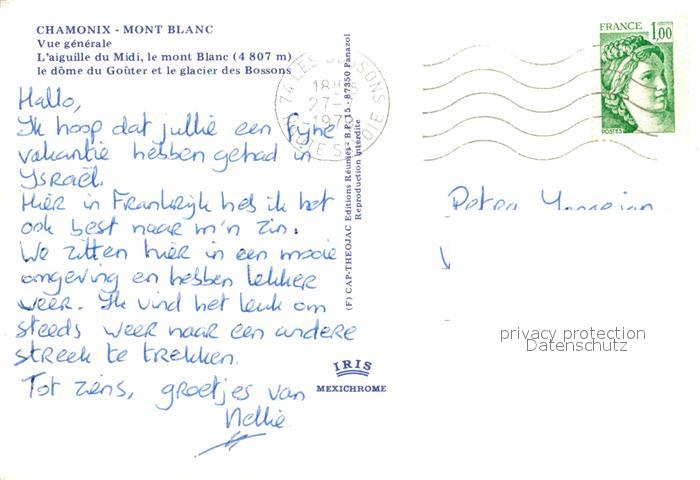 CHAMONIX - MONT BLANC
Vue générale
L'aiguille du Midi, le mont Blanc (4 807 m)
le dôme du Goûter et le glacier des Bossons
Hallo,
Ik hoop dat jullie een fijne
vakantie hebben gehad in
Ysraël.
Hier in Frankrijk heb ik het
ook best naar m'n zin.
We zitten hier in een mooie
omgeving en hebben lekker
weer. Ik vind het leuk om
steeds weer naar een andere
streek te trekken.
Tot ziens, groetjes van
Nellie
(F) CAP-THEOJAC Editions Réunies - B.P. 15 - 87350 Panazol
Reproduction interdite
IRIS
MEXICHROME
74 LES BOSSONS
18H
27-
HAUTE SAVOIE
FRANCE
1,00
POSTES
Petra
privacy protection
Datenschutz